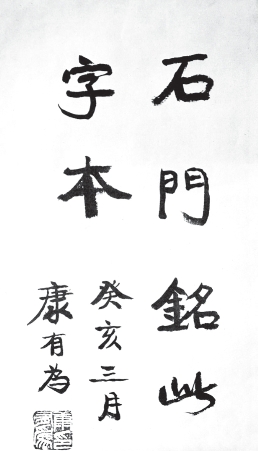 石門銘此
字本
癸亥三月
康有為